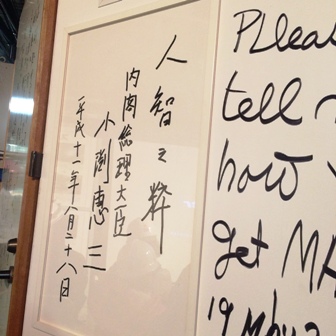 人智之粋
内閣総理大臣
小渕恵三
平成十一年八月二十八日
Pleas
tell
how
get MA
19 May 2